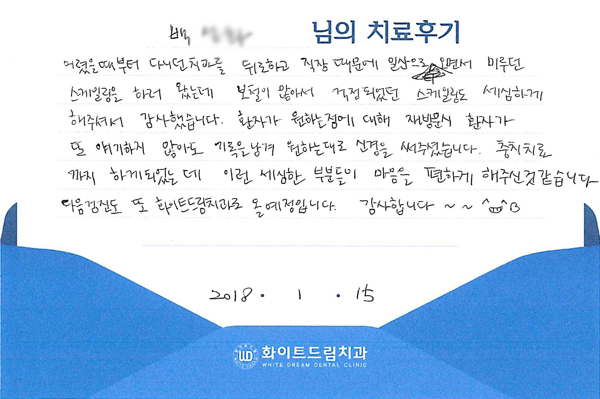 백 님의 치료후기
어렸을때부터 다니던 치과를 뒤로하고 직장 때문에 일산으로 오면서 미루던
스케일링을 하러 왔는데 보철이 많아서 걱정되었던 스케일링도 세심하게
해주셔서 감사했습니다. 환자가 원하는점에 대해 재방문시 환자가
또 얘기하지 않아도 기록을 남겨 원하는대로 신경을 써주셨습니다. 충치치료
까지 하게되었는데 이런 세심한 부분들이 마음을 편하게 해주신것같습니다
다음검진도 또 화이트드림치과로 올 예정입니다. 감사합니다 ~ ~ ^^
2018 · 1 · 15
WD 화이트드림치과
WHITE DREAM DENTAL CLINIC